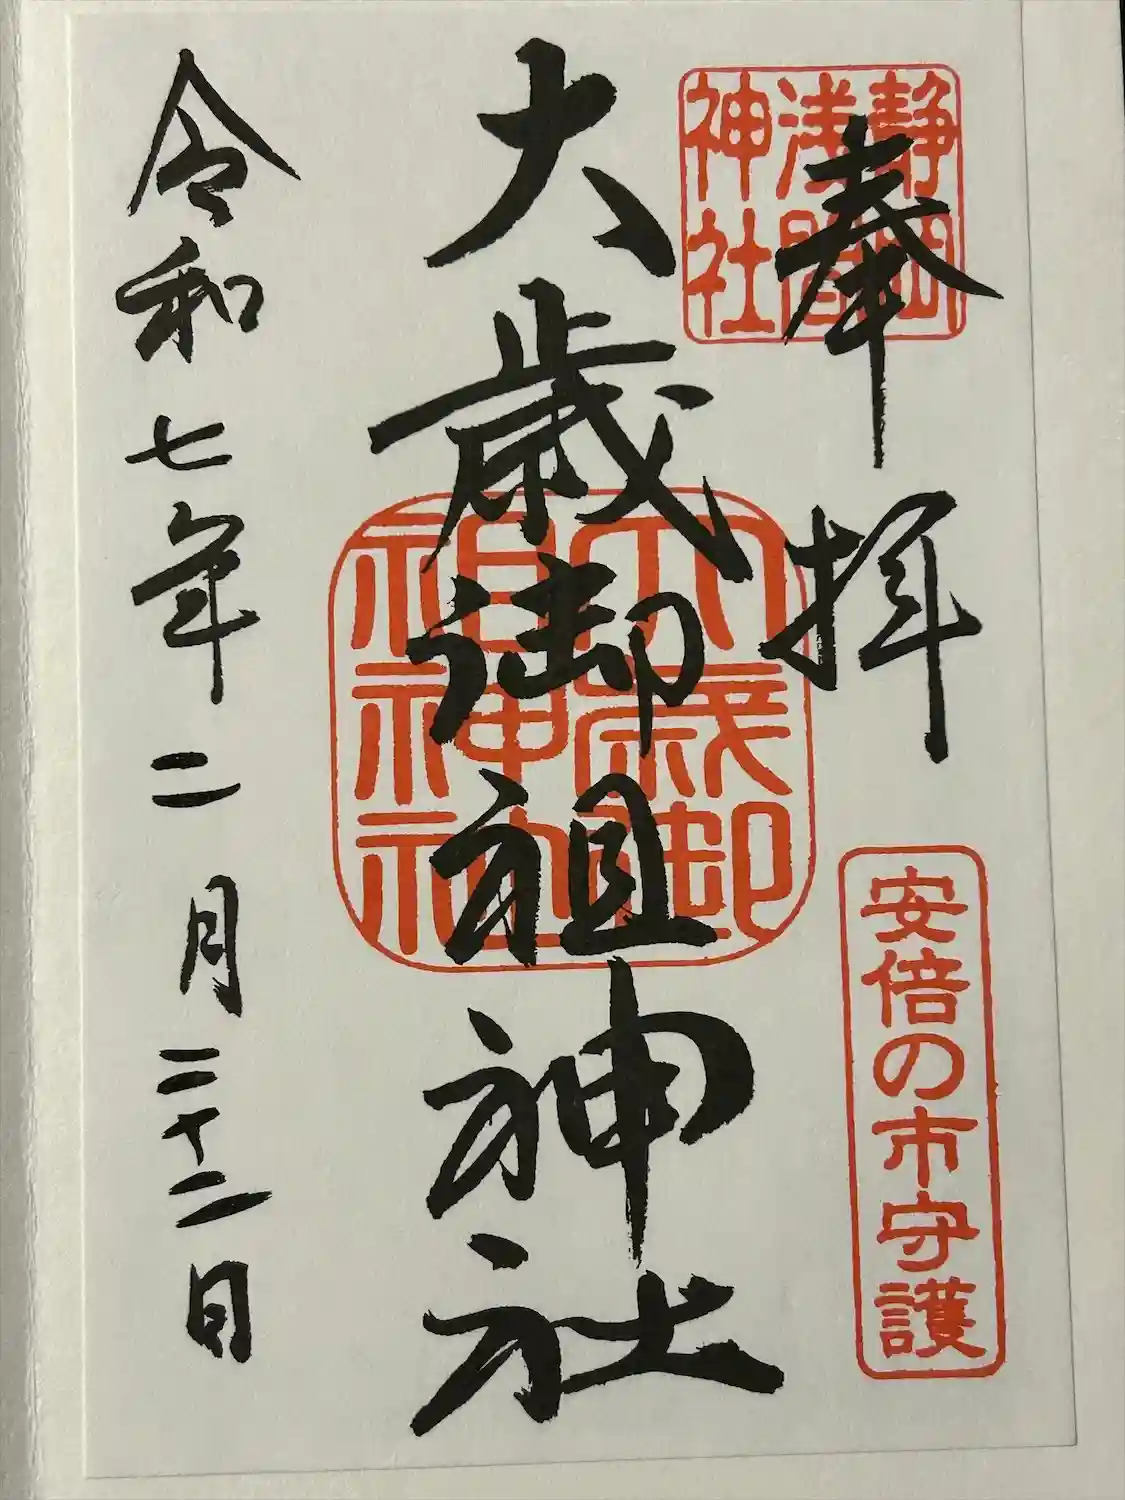 奉拝
静岡
浅間
神社
安倍の市守護
大歳御祖神社
大歳御
祖神社
令和七年二月二十二日